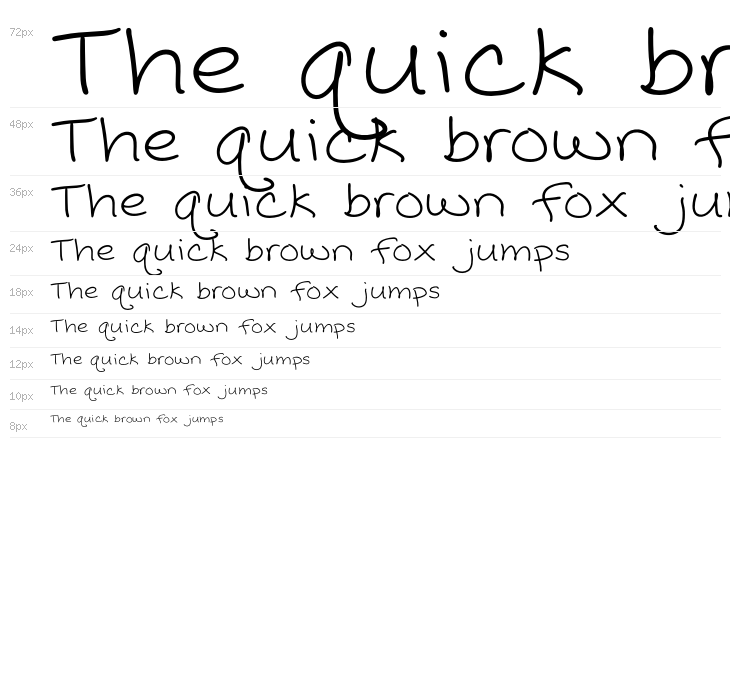 72px The quick br
48px The quick brown f
36px The quick brown fox ju
24px The quick brown fox jumps
18px The quick brown fox jumps
14px The quick brown fox jumps
12px The quick brown fox jumps
10px The quick brown fox jumps
8px The quick brown fox jumps